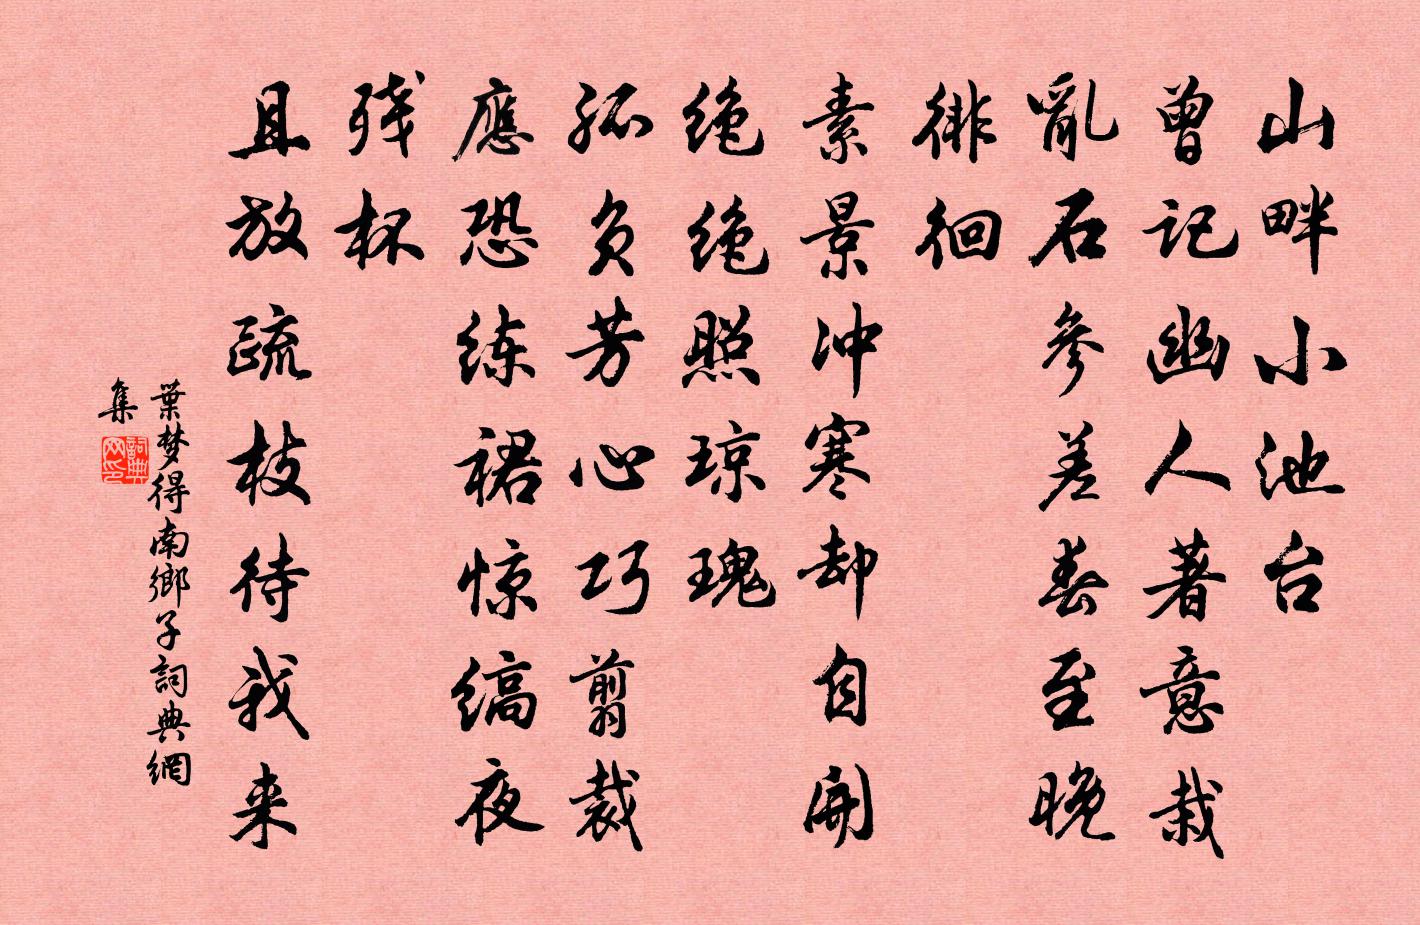 山畔小池台
曾记幽人著意栽
亂石参差春至晚
徘徊
素景冲寒却自開
绝绝照琼瑰
孤负芳心巧翦裁
應恐练裙惊缟夜
残杯
且放疏枝待我来
葉梦得南鄉子詞典網
集
詞典网印